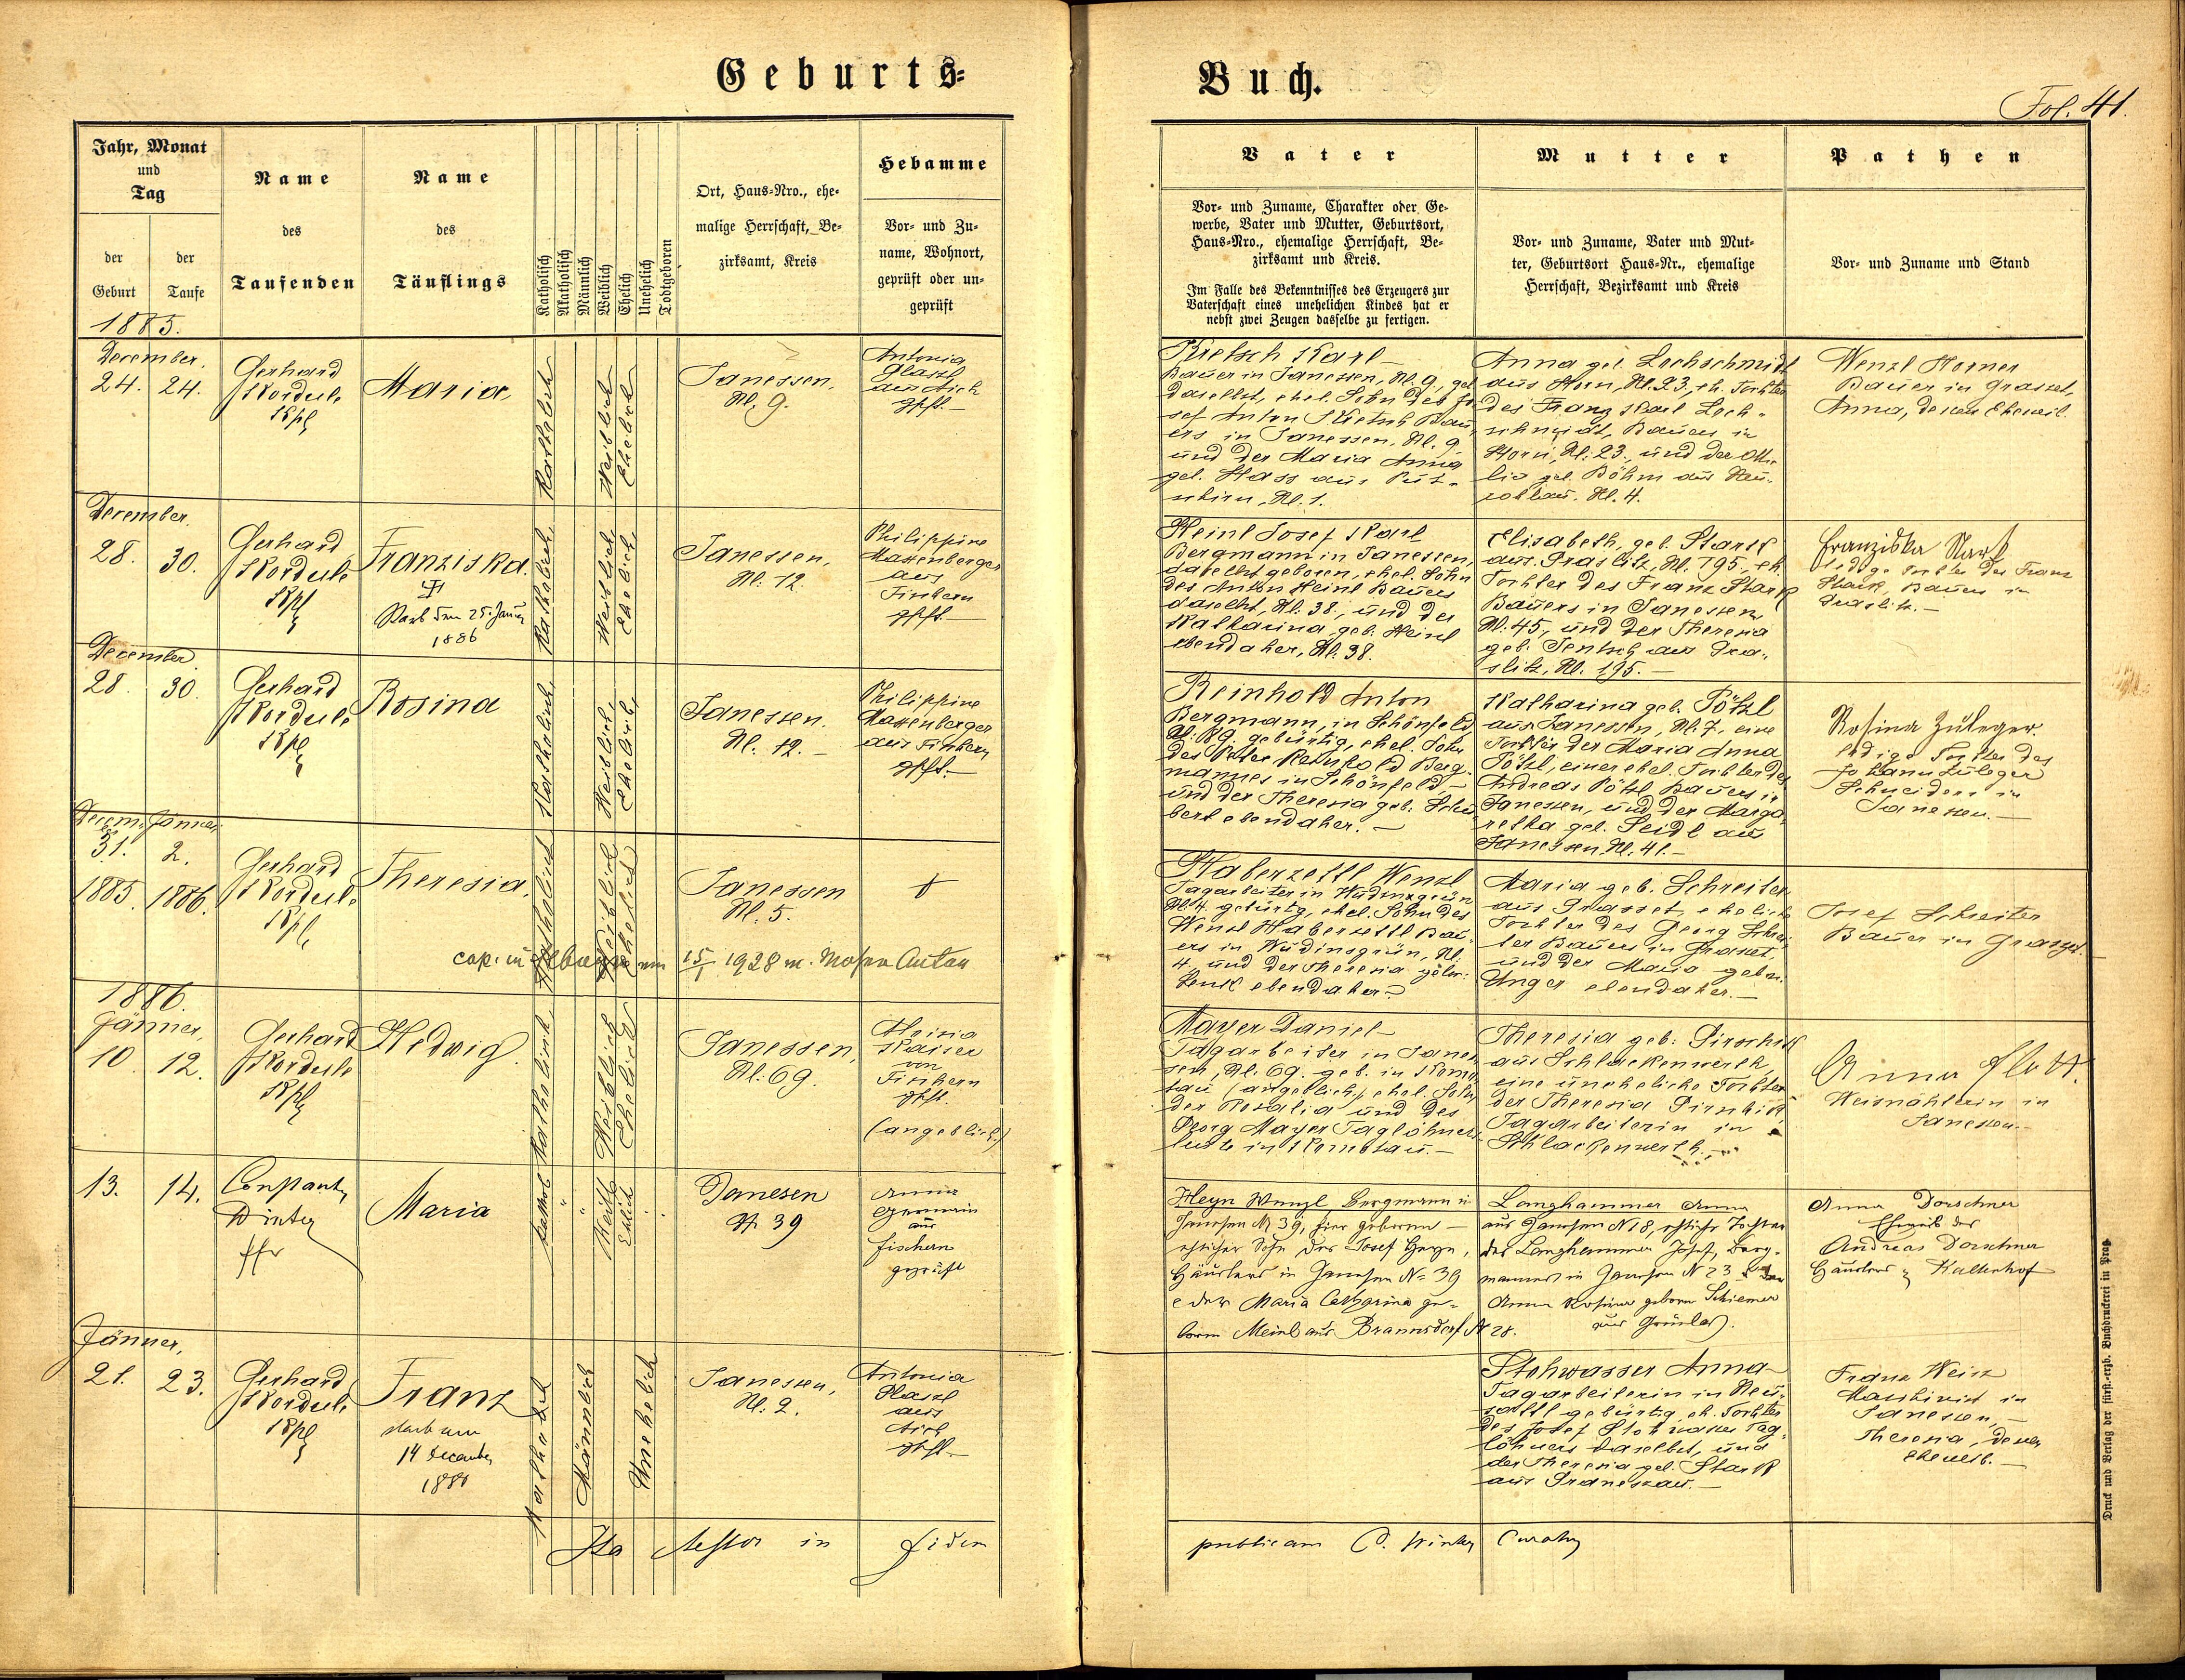 Geburts=
Buch.
Fol. 41.
Jahr, Monat
und
Tag
der
Geburt
der
Taufe
Name
des
Taufenden
Name
des
Täuflings
Katholisch
Akatholisch
Männlich
Weiblich
Ehelich
Unehelich
Todtgeboren
Ort, Haus=Nro., ehe=
malige Herrschaft, Be=
zirksamt, Kreis
Hebamme
Vor= und Zu=
name, Wohnort,
geprüft oder un=
geprüft
Vater
Vor= und Zuname, Charakter oder Ge=
werbe, Vater und Mutter, Geburtsort,
Haus=Nro., ehemalige Herrschaft, Be=
zirksamt und Kreis.
Im Falle des Bekenntnisses des Erzeugers zur
Vaterschaft eines unehelichen Kindes hat er
nebst zwei Zeugen dasselbe zu fertigen.
Mutter
Vor= und Zuname, Vater und Mut=
ter, Geburtsort Haus=Nr., ehemalige
Herrschaft, Bezirksamt und Kreis
Pathen
Vor= und Zuname und Stand
1885.
December.
24. 24.
Gerhard
Kordule
Kpl
Maria
Katholisch
Weiblich
Ehelich
Janessen,
Nl. 9.
Antonia
Glassl
aus Aich
gpft.
Kretsch Karl
Bauer in Janessen, Nl. 9, geb
daselbst, ehel. Sohn des Jo
sef Anton Kretsch Bau
ers in Janessen, Nl. 9
und der Maria Anna
gel. Hass aus Put=
schirn, Nl. 1.
Anna gel. Lochschmidt
aus Horn, Nl. 23, eh. Tochter
des Franz Karl Loch=
schmidt, Bauers in
Horn, Nl: 23., und der Otti
lia gel. Böhm aus Neu=
rohlau. Nl. 4.
Wenzl Horner
Bauer in Grasset,
Anna, dessen Eheweib.
December.
28. 30.
Gerhard
Kordule
Kpl
Franziska.
Starb den 25. Januar
1886
Katholisch
Weiblich
Ehelich
Janessen,
Nl: 12.
Philippine
Massenberger
aus
Fischern
gpft.
Heinl Josef Karl
Bergmann in Janessen,
daselbst geboren, ehel. Sohn
des Anton Heinl Bauers
daselbst, Nl. 38., und der
Katharina, geb. Heinl
ebendaher, Nl: 38.
Elisabeth, geb. Stark
aus Graslitz, Nl. 195, eh.
Tochter des Franz Stark
Bauers in Janessen,
Nl: 45, und der Theresia
geb. Tentsch aus Gra=
slitz, Nl. 195.
Franziska Stark
ledige Tochter des Franz
Stark, Bauers in
Graslitz.
December.
28. 30.
Gerhard
Kordule
Kpl
Rosina
Katholisch
Weiblich
Ehelich
Janessen.
Nl. 12.
Philippine
Massenberger
aus Fischern
gpft.
Reinhold Anton
Bergmann, in Schönfeld
Nl: 89. gebürtig, ehel. Sohn
des Peter Reinhold Berg=
mannes in Schönfeld,
und der Theresia geb. Schu
bert ebendaher.
Katharina geb. Pötzl
aus Janessen, Nl: 7, eine
Tochter der Maria Anna
Pötzl, einer ehel. Tochter des
Andreas Pötzl Bauers in
Janessen, und der Marga
retha gel. Seidl aus
Janessen, Nl. 41.
Rosina Züleger.
ledige Tochter des
Johann Züleger
Schneiders in
Janessen.
Decem. Jänner
31. 2.
1885 1886.
Gerhard
Kordule
Kpl
Theresia
Katholisch
Weiblich
Ehelich
Janessen
Nl. 5.
15/1 1928 m. Moser Anton
Haberzettl Wenzl
Tagarbeiter in Wudingrün
Nl. 4. gebürtig, ehel. Sohn des
Wenzl Haberzettl Bau=
ers in Wudingrün, Nl.
4, und der Theresia gebor.
Lenk ebendaher.
Maria geb. Schreiter
aus Grasset, eheliche
Tochter des Georg Schrei
ter Bauers in Grasset,
und der Maria gebor.
Unger ebendaher.
Josef Schreiter
Bauer in Grasset.
1886.
Jänner,
10. 12.
Gerhard
Kordule
Kpl
Hedwig.
Katholisch
Weiblich
Ehelich
Janessen,
Nl: 69.
Maria
Kaiser
von
Fischern
gpft.
(angeblich)
Mayer Daniel
Tagarbeiter in Janes
sen, Nl: 69. geb. in Komo
tau (angeblich) ehel. Sohn
der Rosalia und des
Georg Mayer Taglöhners
leute in Komotau.
Theresia geb: Pirschik
aus Schlackenwerth,
eine uneheliche Tochter
der Theresia Pirschik
Tagarbeiterin in
Schlackenwerth.
Anna Flatt.
Weisnähterin in
Janessen.
13. 14.
Constant.
Winter
ffr
Maria
kathol
Weibl
Ehlich
Janesen
N 39
Anna
Germain
aus
Fischern
geprüft
Heyn Wenzl Bergmann in
Janesen N 39, hier geboren
ehlicher Sohn des Josef Heyn,
Häuslers in Janesen No 39
e der Maria Catharina ge=
borne Meinl aus Braunsdorf N 28.
Langhammer Anna
aus Janesen N 18, ehliche Tochter
des Langhammer Josef, Berg=
mannes in Janesen N 23 & der
Anna Rosina geborne Schiemer
aus Grünlas.
Anna Dorschner
Eheweib des
Andreas Dorschner
Häuslers z Kaltenhof
Jänner,
21. 23.
Gerhard
Kordule
Kpl
Franz
starb am
14 December
1888
Katholisch
Männlich
Unehelich
Janessen,
Nl: 2.
Antonia
Glassl
aus
Aich
gpft.
Stohwasser Anna
Tagarbeiterin in Neu=
sattl gebürtig, eh. Tochter
des Josef Stohwasser Tag=
löhners daselbst, und
der Theresia gel. Stark
aus Granessau.
Franz Weis
Maschinist in
Janessen,
Theresia, dessen
Eheweib.
Ita testor in fidem
publicam C. Winter Curatus
Druck und Verlag der fürst.=erzb. Buchdruckerei in Prag.